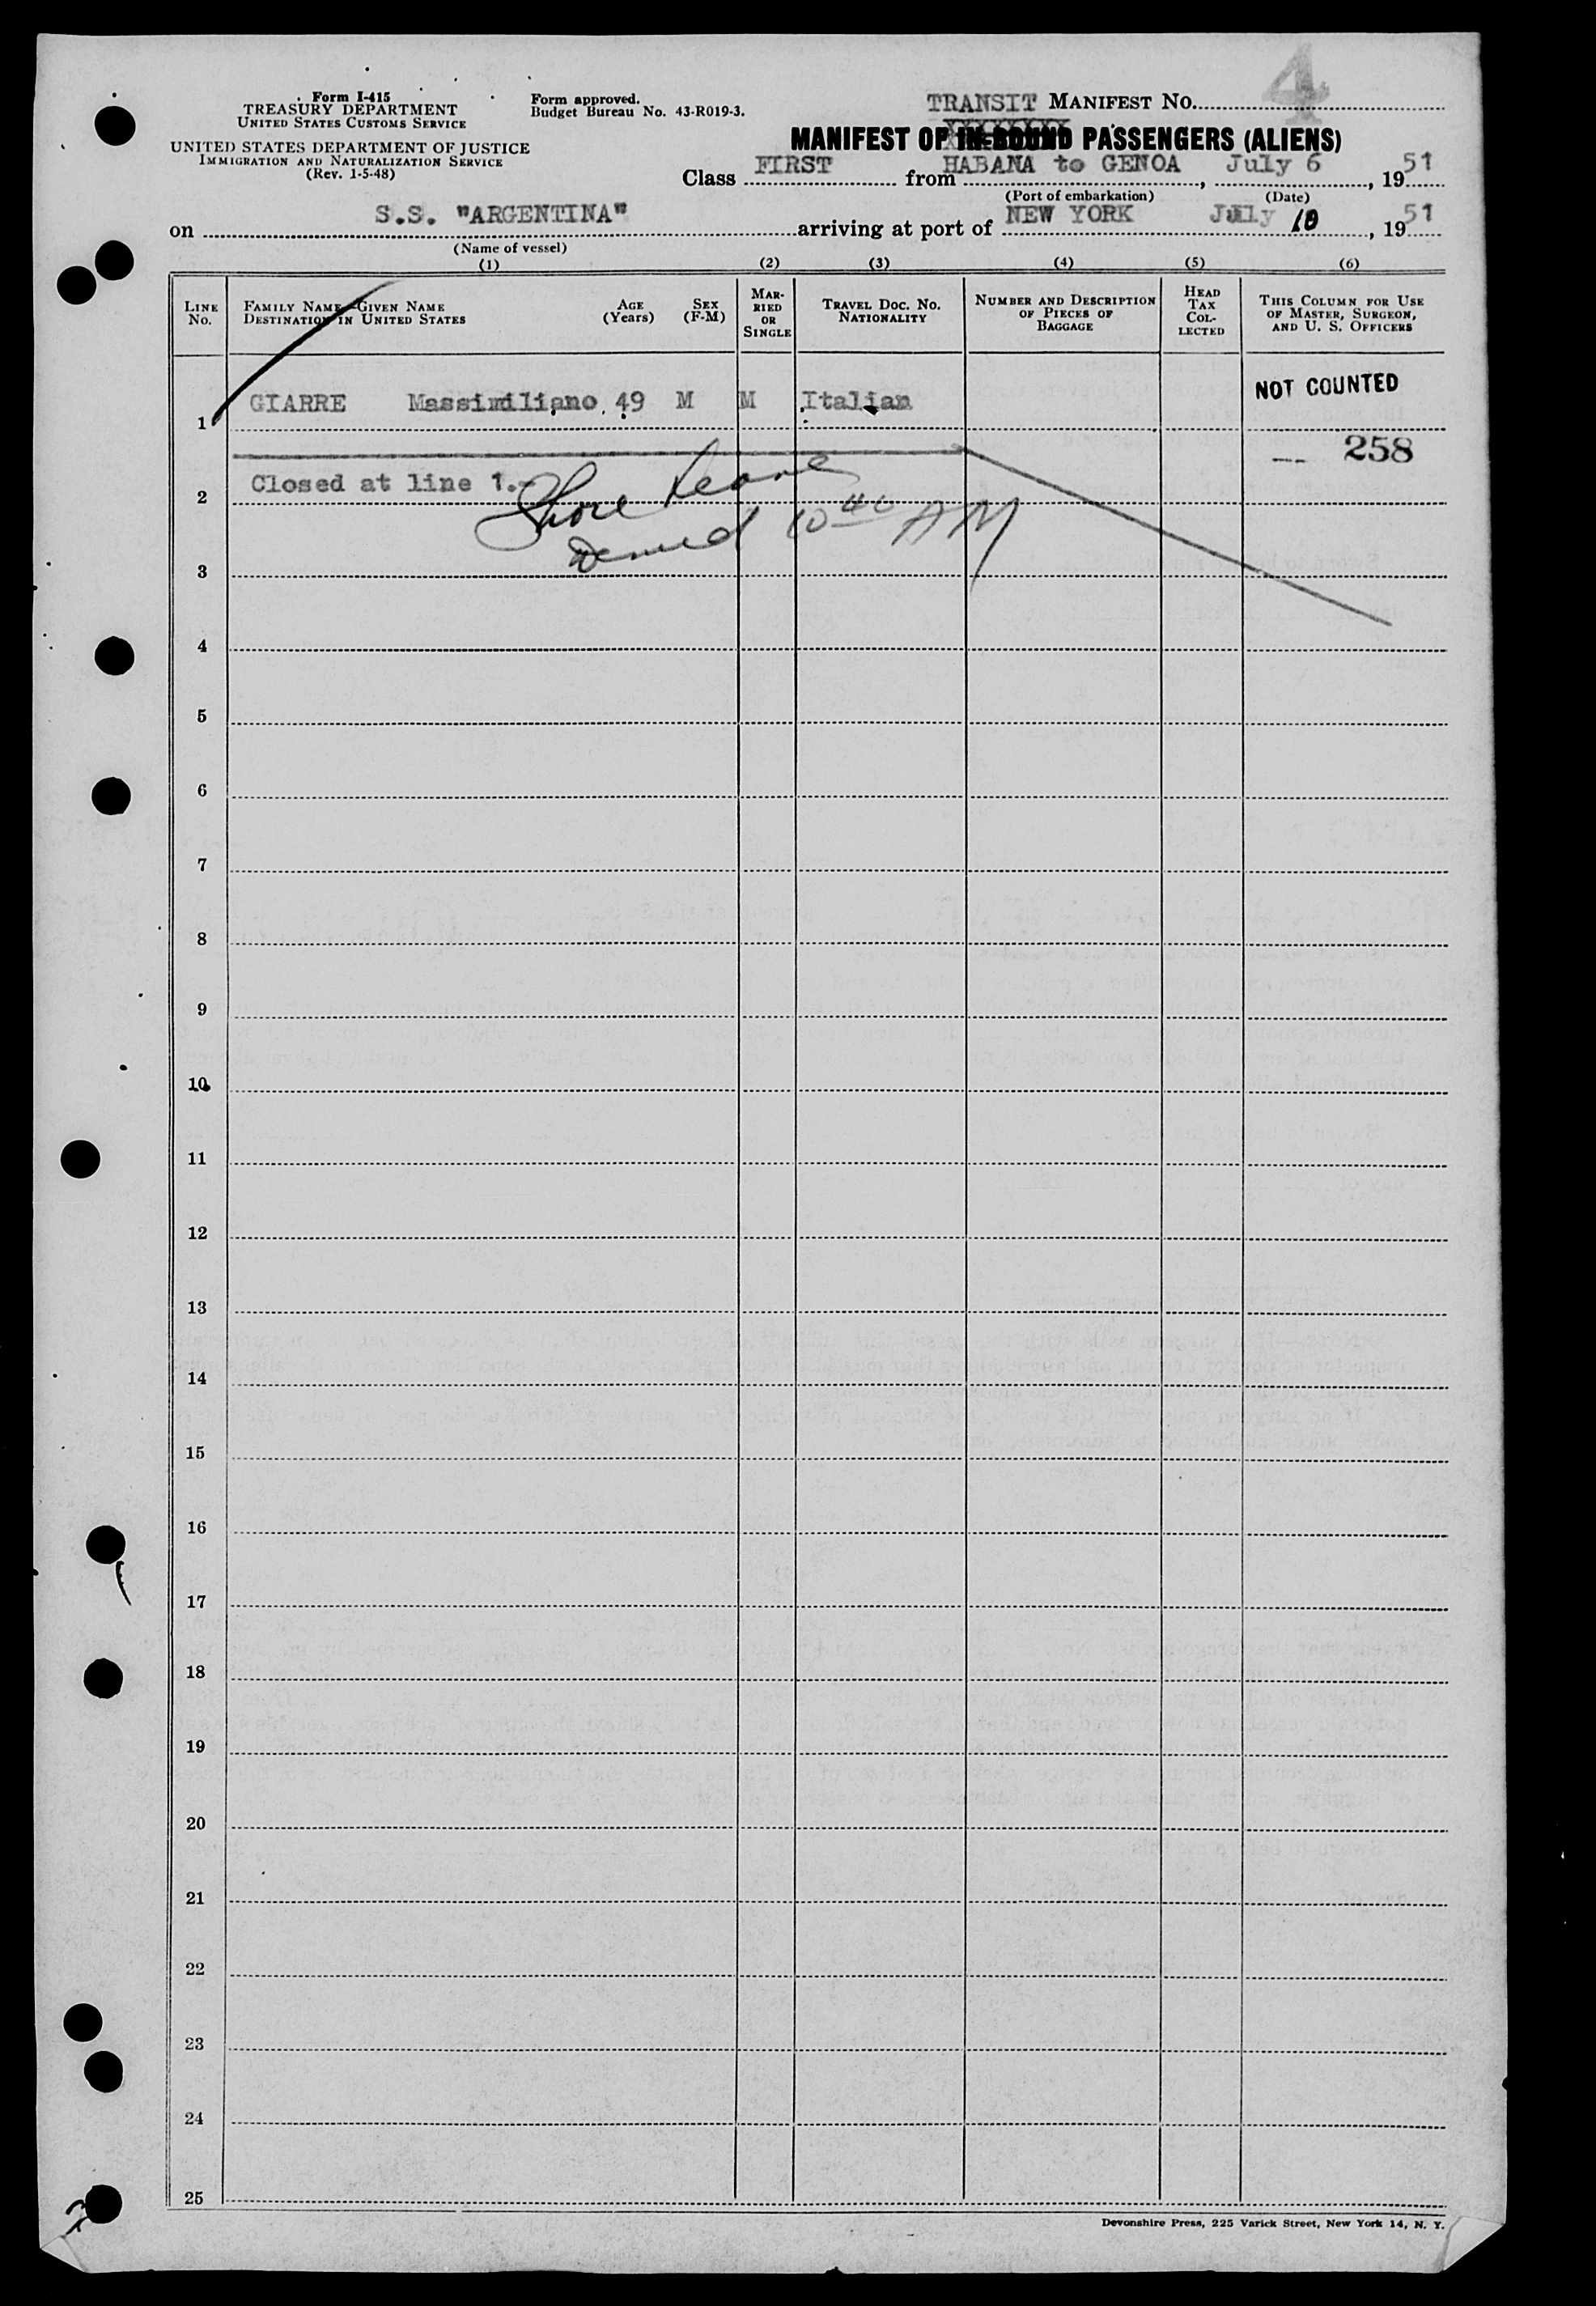 4
Form I-415
TREASURY DEPARTMENT
UNITED STATES CUSTOMS SERVICE
UNITED STATES DEPARTMENT OF JUSTICE
IMMIGRATION AND NATURALIZATION SERVICE
(Rev. 1-5-48)
Form approved.
Budget Bureau No. 43-R019-3.
TRANSIT MANIFEST NO.
MANIFEST OF IN-BOUND PASSENGERS (ALIENS)
Class FIRST from HABANA to GENOA, July 6, 1951
(Port of embarkation) (Date)
on S.S. "ARGENTINA" arriving at port of NEW YORK July 10, 1951
(Name of vessel)
(1) (2) (3) (4) (5) (6)
LINE No. FAMILY NAME—GIVEN NAME DESTINATION IN UNITED STATES AGE (Years) SEX (F-M) MARRIED OR SINGLE TRAVEL DOC. NO. NATIONALITY NUMBER AND DESCRIPTION OF PIECES OF BAGGAGE HEAD TAX COLLECTED THIS COLUMN FOR USE OF MASTER, SURGEON, AND U. S. OFFICERS
1 GIARRE Massimiliano 49 M M Italian NOT COUNTED
-- 258
2 Closed at line 1.-
Shore Leave
Denied 10 40 AM
3
4
5
6
7
8
9
10
11
12
13
14
15
16
17
18
19
20
21
22
23
24
25
Devonshire Press, 225 Varick Street, New York 14, N. Y.